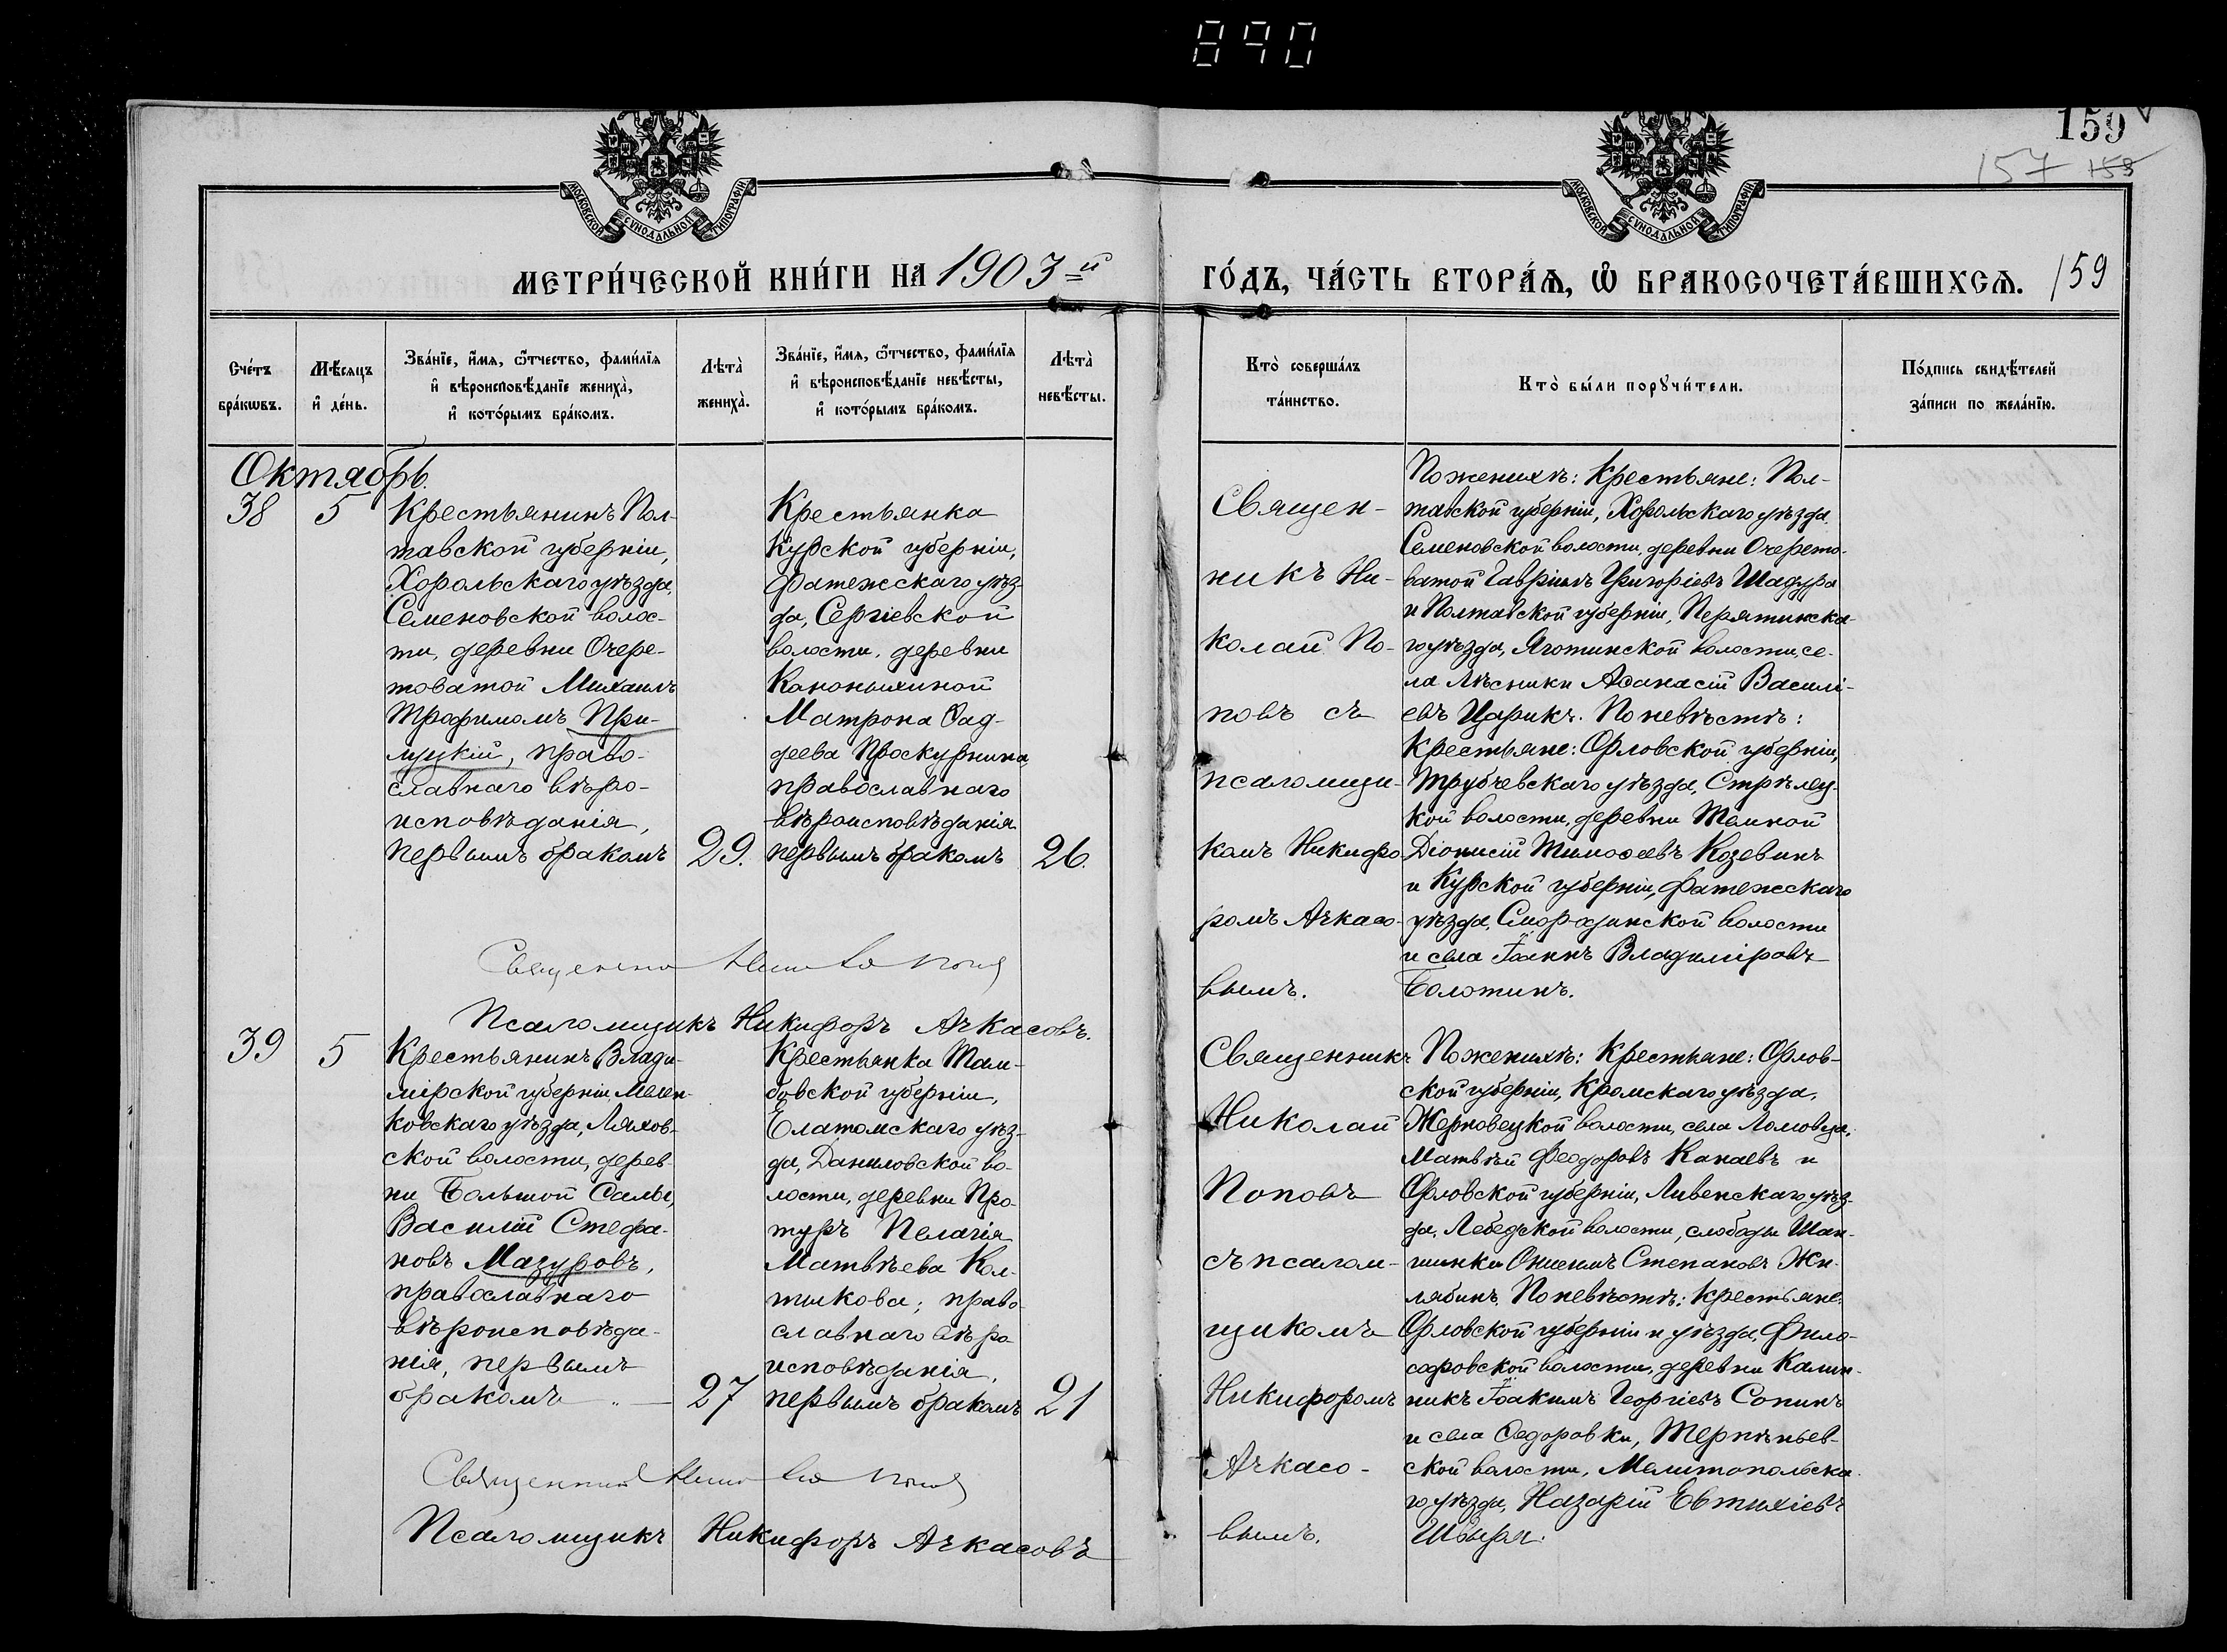 890
159
157 158
МОСКОВСКОЙ СУНОДАЛЬНОЙ ТИПОГРАФІИ
МОСКОВСКОЙ СУНОДАЛЬНОЙ ТИПОГРАФІИ
МЕТРИ́ЧЕСКОЙ КНИ́ГИ НА 1903-й
ГО́ДЪ, ЧА́СТЬ ВТОРА́Ѧ, Ѽ БРАКОСОЧЕТА́ВШИХСѦ. 159
Сче́тъ бра́кѡвъ.
Мѣ́сяцъ и҆ де́нь.
Зва́нїе, и҆́мѧ, ѻ҆́тчество, фами́лїѧ
и҆ вѣроисповѣ́данїе жениха̀,
и҆ кото́рымъ бра́комъ.
Лѣта̀ жениха̀.
Зва́нїе, и҆́мѧ, ѻ҆́тчество, фами́лїѧ
и҆ вѣроисповѣ́данїе невѣ́сты,
и҆ кото́рымъ бра́комъ.
Лѣта̀ невѣ́сты.
Кто̀ соверша́лъ та́инство.
Кто̀ бы́ли порꙋчи́тели.
По́дпись свидѣ́телей за́писи по жела́нїю.
Октябрь.
38
5
Крестьянинъ Пол-
тавской губерніи,
Хорольскаго уѣзда,
Семеновской волос-
ти, деревни Очере-
товатой Михаилъ
Трофимомъ При-
луцкій, право-
славнаго вѣро-
исповѣданія,
первымъ бракомъ
29.
Крестьянка
Курской губерніи,
Фатежскаго уѣз-
да, Сергіевской
волости, деревни
Кононыхиной
Матрона Ѳад-
деева Проскурнина,
православнаго
вѣроисповѣданія
первымъ бракомъ
26.
Священ-
никъ Ни-
колай По-
повъ съ
псаломщи-
комъ Никифо-
ромъ Ачкасо-
вымъ.
По женихѣ: Крестьяне: Пол-
тавской губерніи, Хорольскаго уѣзда,
Семеновской волости, деревни Очерето-
ватой Гавріилъ Григоріевъ Шадура
и Полтавской губерніи, Пирятинска-
го уѣзда, Яготинской волости, се-
ла Лѣсники Аѳанасій Василі-
евъ Царикъ. По невѣстѣ:
Крестьяне: Орловской губерніи,
Трубчевскаго уѣзда, Стрѣлец-
кой волости, деревни Темной
Діонисій Тимоѳеевъ Козевинъ
и Курской губерніи, Фатежскаго
уѣзда, Смородинской волости
и села Іоаннъ Владиміровъ
Болотинъ.
Священник
Псаломщикъ Никифоръ Ачкасовъ.
39
5
Крестьянинъ Влади-
мірской губерніи, Мелен-
ковскаго уѣзда, Ляхов-
ской волости, дерев-
ни Большой Салы,
Василій Стефа-
новъ Мазуровъ,
православнаго
вѣроисповѣда-
нія, первымъ
бракомъ
27
Крестьянка Там-
бовской губерніи,
Елатомскаго уѣз-
да, Даниловской во-
лости, деревни Про-
туръ Пелагія
Матвѣева Кол-
тыкова; право-
славнаго вѣро-
исповѣданія,
первымъ бракомъ
21
Священникъ
Николай
Поповъ
съ псалом-
щикомъ
Никифоромъ
Ачкасо-
вымъ.
По женихѣ: Крестьяне: Орлов-
ской губерніи, Кромскаго уѣзда,
Жерновецкой волости, села Ломовца,
Матвѣй Феодоровъ Канаевъ и
Орловской губерніи, Ливенскаго уѣз-
да, Лебедской волости, слободы Шат-
шинки Онисимъ Степановъ Жи-
лябинъ. По невѣстѣ: крестьяне:
Орловской губерніи и уѣзда, Фило-
софовской волости, деревни Калин-
никъ Іоакимъ Георгіевъ Сопинъ
и села Ѳедоровки, Терпѣньев-
ской волости, Мелитопольска-
го уѣзда, Назарій Евтихіевъ
Швыря.
Священник
Псаломщикъ Никифоръ Ачкасовъ